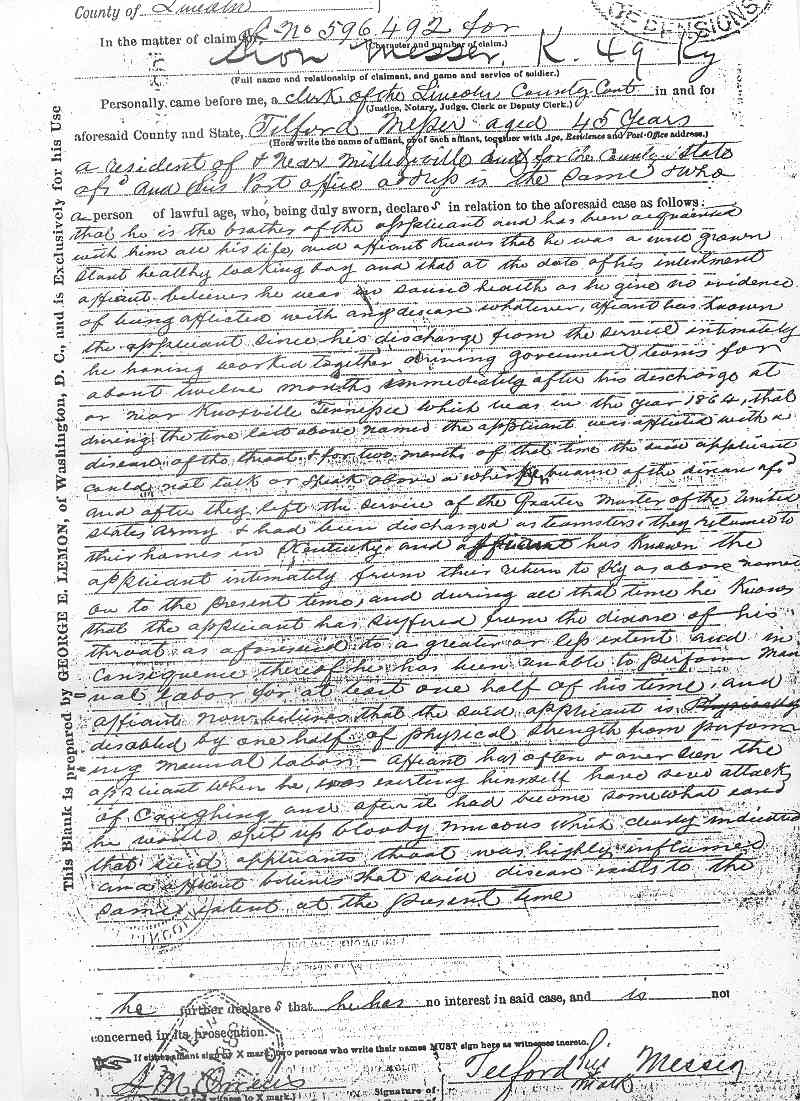 County of Lincoln
OF PENSIONS
In the matter of claim for No 596.492 for
(Character and number of claim.)
Messer, K. 49 Ky
(Full name and relationship of claimant, and name and service of soldier.)
Personally came before me, a clerk of the Lincoln County Court in and for
(Justice, Notary, Judge, Clerk or Deputy Clerk.)
aforesaid County and State, Tilford Messer aged 45 Years
(Here write name of affiant, or of each affiant, together with Age, Residence and Post-Office address.)
a resident of & Near Milledgeville and for the County & State
afsd and his Post office address is the Same & who
a person of lawful age, who, being duly sworn, declares in relation to the aforesaid case as follows:
that he is the brother of the applicant and has been acquainted
with him all his life, and affiant knows that he was a well grown
stout healthy looking boy and that at the date of his inlistment
affiant believes he was in sound health as he give no evidence
of being afflicted with any disease whatever, affiant has known
the applicant since his discharge from the service intimately
he having worked together driving government teams for
about twelve months immediately after his discharge at
or near Knoxville Tennessee which was in the year 1864, that
during the time last above named the applicant was afflicted with a
disease of the throat & for two months of that time the said applicant
could not talk or speak above a whisper because of the disease afsd
and after they left the service of the Quarter Master of the United
States Army & had been discharged as teamsters, they returned to
their homes in Kentucky, and affiant has known the
applicant intimately from their return to Ky as above named
on to the present time, and during all that time he knows
that the applicant has suffered from the disease of his
throat as aforesaid to a greater or less extent and in
consequence thereof he has been unable to perform man
ual labor for at least one half of his time, and
affiant now believes that the said applicant is Physically
disabled by one half of physical strength from perform
ing manual labor – affiant has often & over seen the
applicant when he was exerting himself have seve attacks
of Coughing and after it had become somewhat
he would spit up bloody mucous which clearly indicated
that said applicants throat was highly inflamed
and affiant believes that said disease exists to the
same extent at the present time
he further declares that he has no interest in said case, and is not
concerned in its prosecution.
If either affiant sign by X mark, two persons who write their names MUST sign here as witnesses thereto.
Tilford his Messer
mark
Signature of
This Blank is prepared by GEORGE E. LEMON, of Washington, D. C., and is Exclusively for his Use